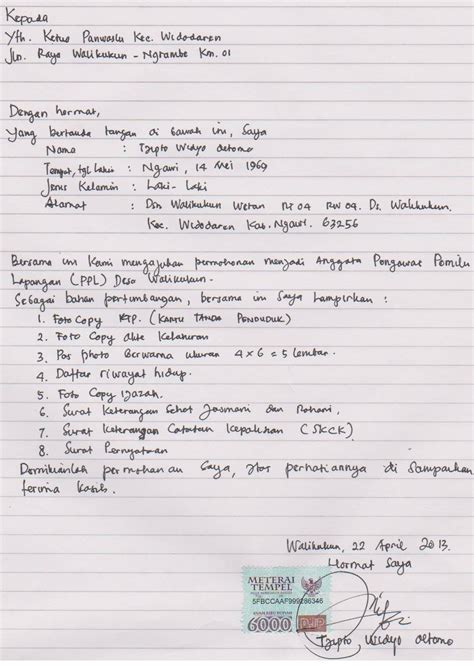 Kepada
Yth. Ketua Panwaslu Kec. Widodaren
Jln. Raya Walikukun - Ngrambe Km. 01
Dengan hormat,
Yang bertanda tangan di bawah ini, Saya
Nama : Tjipto Widyo Oetomo
Tempat, tgl Lahir : Ngawi, 14 Mei 1969
Jenis Kelamin : Laki - Laki
Alamat : Dsn Walikukun Wetan RT 04 RW 04. Ds. Walikukun.
Kec. Widodaren Kab. Ngawi. 63256
Bersama ini Kami mengajukan permohonan menjadi Anggota Pengawas Pemilu
Lapangan (PPL) Desa Walikukun.
Sebagai bahan pertimbangan, bersama ini Saya Lampirkan :
1. Foto Copy KTP. (KARTU TANDA PENDUDUK)
2. Foto Copy akte Kelahiran
3. Pas photo Berwarna ukuran 4 x 6 = 5 lembar.
4. Daftar riwayat hidup.
5. Foto Copy Ijazah.
6. Surat Keterangan Sehat Jasmani dan Rohani,
7. Surat Keterangan Catatan Kepolisian (SKCK)
8. Surat Pernyataan
Demikianlah permohonan Saya, atas perhatiannya di Sampaikan
terima Kasih.
Walikukun, 22 April 2013.
Hormat Saya
METERAI
TEMPEL
5FBCCAAF999286346
ENAM RIBU RUPIAH
6000 DJP
Tjipto Widyo Oetomo